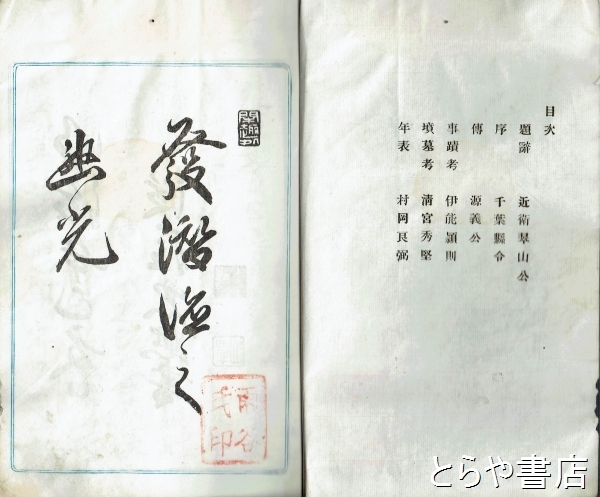 目次
題辭 近衛翠山公
序 千葉縣令
傳 源義公
事蹟考 伊能穎則
墳墓考 清宮秀堅
年表 村岡良弼
發潛德之
幽光
とらや書店